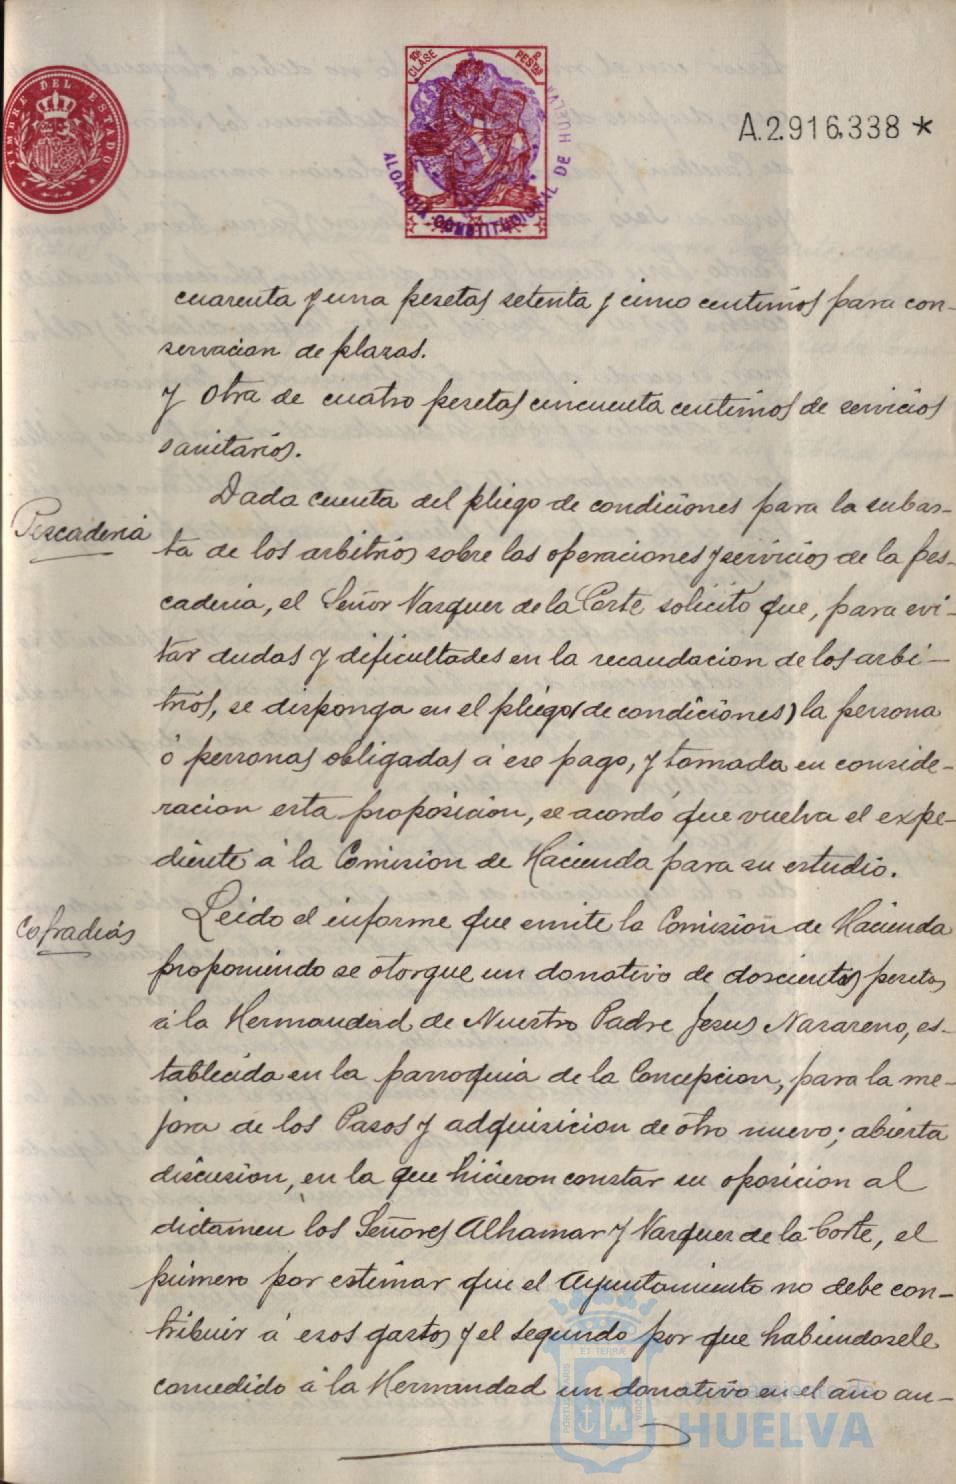 TIMBRE DEL ESTADO
10ª CLASE
2 PESTAS
ALCALDIA CONSTITUCIONAL DE HUELVA
A.2.916.338 *
cuarenta y una pesetas setenta y cinco centimos para con-
servacion de plazas.
y otra de cuatro pesetas cincuenta centimos de servicios
sanitarios.
Pescaderia
Dada cuenta del pliego de condiciones para la subas-
ta de los arbitrios sobre las operaciones y servicios de la pes-
caderia, el Señor Vazquez de la Corte solicitó que, para evi-
tar dudas y dificultades en la recaudacion de los arbi-
trios, se disponga en el pliego (de condiciones) la persona
ó personas obligadas á ese pago, y tomada en conside-
racion esta proposicion, se acordó que vuelva el expe-
diente á la Comision de Hacienda para su estudio.
Cofradias
Leido el informe que emite la Comision de Hacienda
proponiendo se otorgue un donativo de doscientas pesetas
á la Hermandad de Nuestro Padre Jesus Nazareno, es-
tablecida en la parroquia de la Concepcion, para la me-
jora de los Pasos y adquisicion de otro nuevo; abierta
discusion, en la que hicieron constar su oposicion al
dictamen los Señores Alhamar y Vazquez de la Corte, el
primero por estimar que el Ayuntamiento no debe con-
tribuir á esos gastos y el segundo por que habiendosele
concedido á la Hermandad un donativo en el año an-
Ayuntamiento de
HUELVA